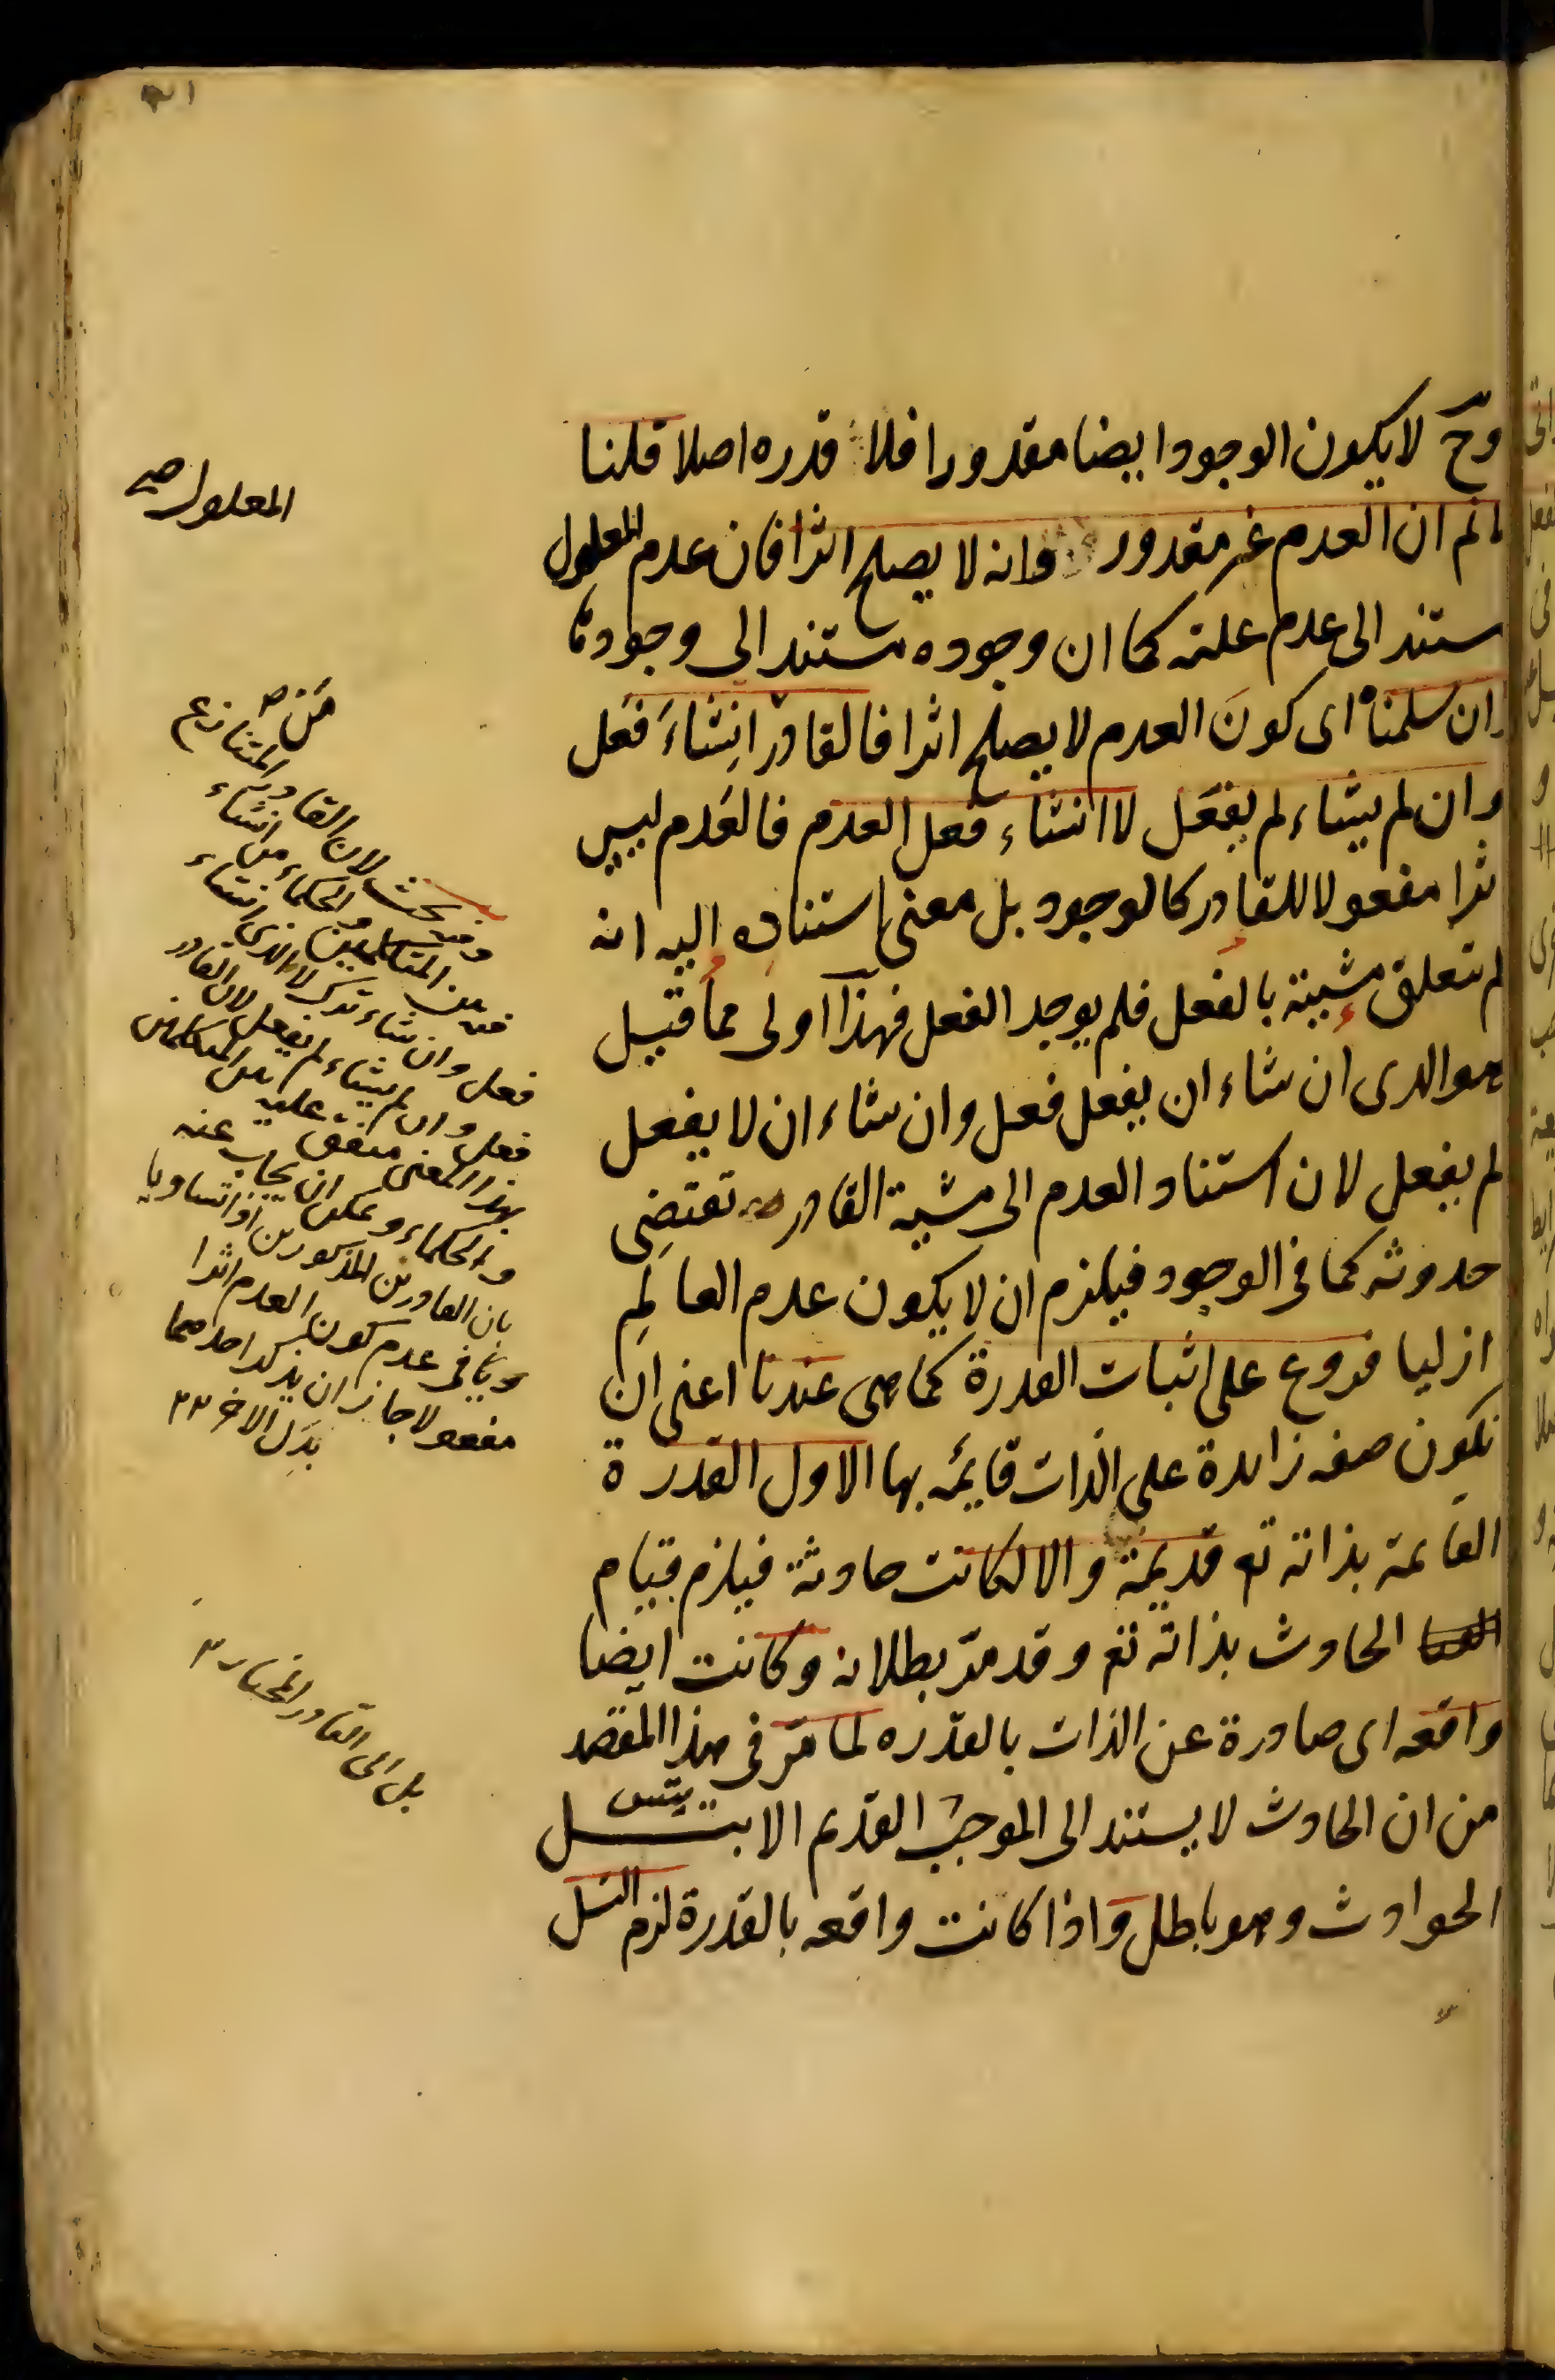 وح لا يكون الوجود ايضا مقدورا فلا قدره اصلا قلنا
لانم ان العدم غير مقدور وانه لا يصلح اثرا فان عدم المعلول
ستند الى عدم علته كما ان وجوده مستند الى وجودها
وان سلمناه اى كونَ العدم لا يصلح اثرا فالقادر انشاءَ فَعَل
وان لم يشاء لم يفعَل لا انشاء فعل العدم فالعَدم ليس
اثرا مفعولا للقادر كالوجود بل معنى استناده اليه انه
لم تتعلق مشيته بالفعل فلم يوجد الفعل فهذا اولى مما قيل
هو الدى ان شاء ان يفعل فعل وان شاء ان لا يفعل
لم يفعل لان استناد العدم الى مشية القادر تقتضِى
حدوثه كما فى الوجود فيلزم ان لا يكون عدم العالَمِ
ازليا فروع على اثبات القدرة كما هى عندنا اعنى ان
تكون صفه زايدة على الذات قايمه بها الاول القدرة
القايمة بذاته تع قديمة والا لكانت حادثة فيلزم قيام
الحادث بذاته تع وقد مرّ بطلانه وكانت ايضا
واقعه اى صادرة عن الذات بالقدره لما مَرّ فى هذا المقصد
من ان الحادث لا يستند الى الموجب القديم الا بتسلسل
الحوادث وهو باطل واذا كانت واقعه بالقدرة لزم التسل
المعلول صح
وفيه بحث لان القادر المتنازع
فيه بين المتكلمين والحكماء من انشاء
فعل وان شاء ترك لا الذى انشاء
فعل وان لم يشاء لم يفعل لان القادر
بهذا المعنى متفق عليه بين المتكلمين
والحكماء ويمكن ان يجاب عنه
بان القادرين المذكورين اذا تساويا
فى عدم كون العدم اثرا
مفعولا جاز ان يذكر احدهما
بدَل الاخر ٢٣
بل الى القادر المختار